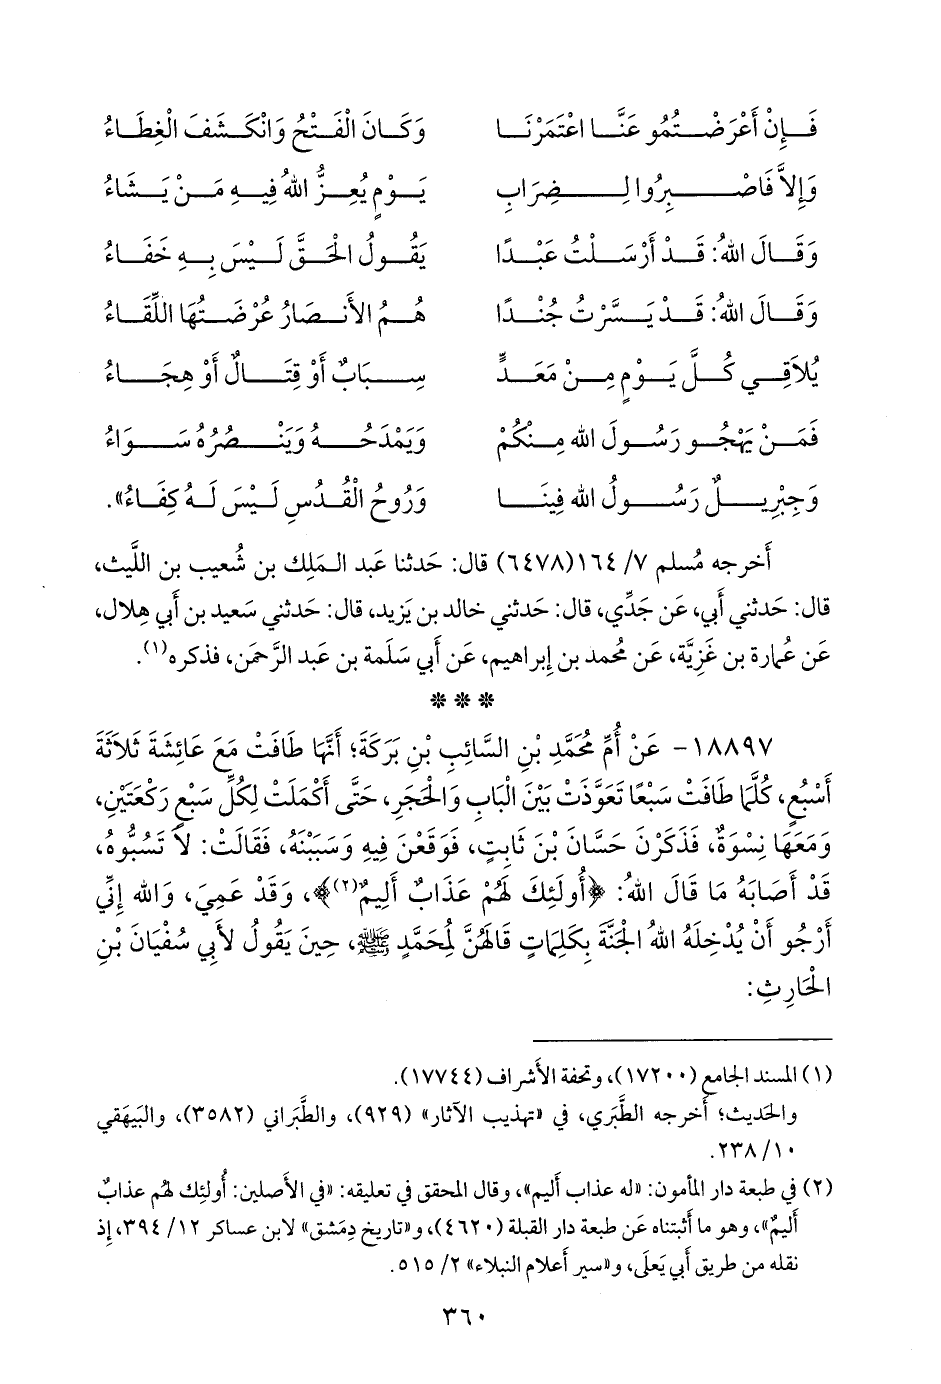 فَإِنْ أَعْرَضْتُمُو عَنَّا اعْتَمَرْنَا وَكَانَ الْفَتْحُ وَانْكَشَفَ الْغِطَاءُ
وَإِلاَّ فَاصْبِرُوا لِضِرَابِ يَوْمٍ يُعِزُّ اللهُ فِيهِ مَنْ يَشَاءُ
وَقَالَ اللهُ: قَدْ أَرْسَلْتُ عَبْدًا يَقُولُ الْحَقَّ لَيْسَ بِهِ خَفَاءُ
وَقَالَ اللهُ: قَدْ يَسَّرْتُ جُنْدًا هُمُ الأَنْصَارُ عُرْضَتُهَا اللِّقَاءُ
يُلاَقِي كُلَّ يَوْمٍ مِنْ مَعَدٍّ سِبَابٌ أَوْ قِتَالٌ أَوْ هِجَاءُ
فَمَنْ يَهْجُو رَسُولَ اللهِ مِنْكُمْ وَيَمْدَحُهُ وَيَنْصُرُهُ سَوَاءُ
وَجِبْرِيلٌ رَسُولُ اللهِ فِينَا وَرُوحُ الْقُدُسِ لَيْسَ لَهُ كِفَاءُ».
أَخرجه مُسلم ٧/ ١٦٤ (٦٤٧٨) قال: حَدثنا عَبد الـمَلِك بن شُعيب بن اللَّيث،
قال: حَدثني أَبي، عَن جَدِّي، قال: حَدثني خالد بن يَزيد، قال: حَدثني سَعيد بن أَبي هِلال،
عَن عُمارة بن غَزِيَّة، عَن مُحمد بن إِبراهيم، عَن أَبي سَلَمة بن عَبد الرَّحمَن، فذكره(١).
* * *
١٨٨٩٧- عَنْ أُمِّ مُحَمَّدِ بْنِ السَّائِبِ بْنِ بَرَكَةَ؛ أَنَّهَا طَافَتْ مَعَ عَائِشَةَ ثَلاَثَةَ
أَسْبُعٍ، كُلَّمَا طَافَتْ سَبْعًا تَعَوَّذَتْ بَيْنَ الْبَابِ وَالْحَجَرِ، حَتَّى أَكْمَلَتْ لِكُلِّ سَبْعٍ رَكْعَتَيْنِ،
وَمَعَهَا نِسْوَةٌ، فَذَكَرْنَ حَسَّانَ بْنَ ثَابِتٍ، فَوَقَعْنَ فِيهِ وَسَبَبْنَهُ، فَقَالَتْ: لاَ تَسُبُّوهُ،
قَدْ أَصَابَهُ مَا قَالَ اللهُ: ﴿أُولَئِكَ لَهُمْ عَذَابٌ أَلِيمٌ(٢)﴾، وَقَدْ عَمِيَ، وَاللهِ إِنِّي
أَرْجُو أَنْ يُدْخِلَهُ اللهُ الْجَنَّةَ بِكَلِمَاتٍ قَالَهُنَّ لِمُحَمَّدٍ ﷺ، حِينَ يَقُولُ لأَبِي سُفْيَانَ بْنِ
الْحَارِثِ:
(١) المسند الجامع (١٧٢٠٠)، وتحفة الأَشراف (١٧٧٤٤).
والحَديث؛ أَخرجه الطَّبَري، في «تهذيب الآثار» (٩٢٩)، والطَّبَراني (٣٥٨٢)، والبَيهَقي
١٠/ ٢٣٨.
(٢) في طبعة دار المأمون: «له عذاب أليم»، وقال المحقق في تعليقه: «في الأصلين: أُولئِك لهم عذابٌ
أَليمٌ»، وهو ما أَثبتناه عَن طبعة دار القبلة (٤٦٢٠)، و«تاريخ دِمَشق» لابن عساكر ١٢/ ٣٩٤، إِذ
نقله من طريق أَبي يَعلَى، و«سير أَعلام النبلاء» ٢/ ٥١٥.
٣٦٠